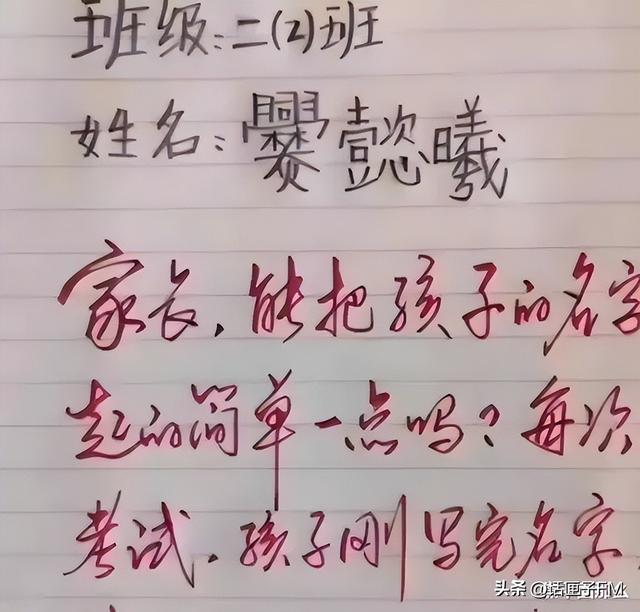 班级:二(2)班
姓名:爨懿曦
家长,能把孩子的名字
起的简单一点吗?每次
考试,孩子刚写完名字,
头条 @话匣子FM